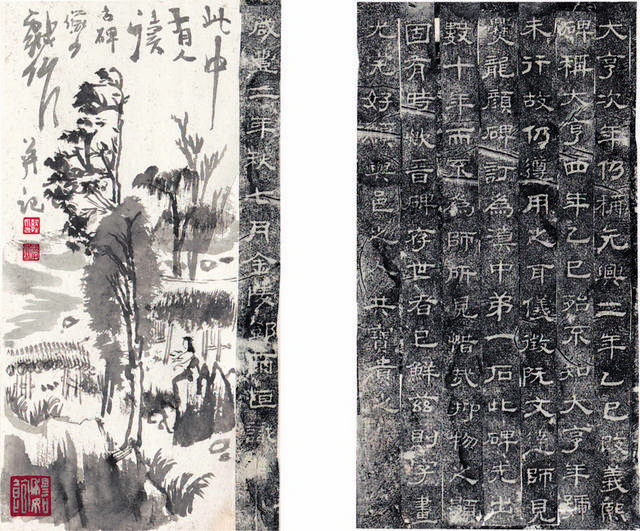 大亨次年仍稱元興二年乙巳改義熙
碑稱大亨四年乙巳殆不知大亨年號
未行故仍遵用之耳儀徵阮文達師見
爨龍顏碑訂為滇中弟一石此碑先出
數十年而不為師所見惜哉抑物之顯
固有時歟晉碑存世者已鮮茲則字畫
尤完好願與邑之人共寶貴之
咸豐二年秋七月金陵鄧爾恒識
此中
有人
讀
古碑
并記